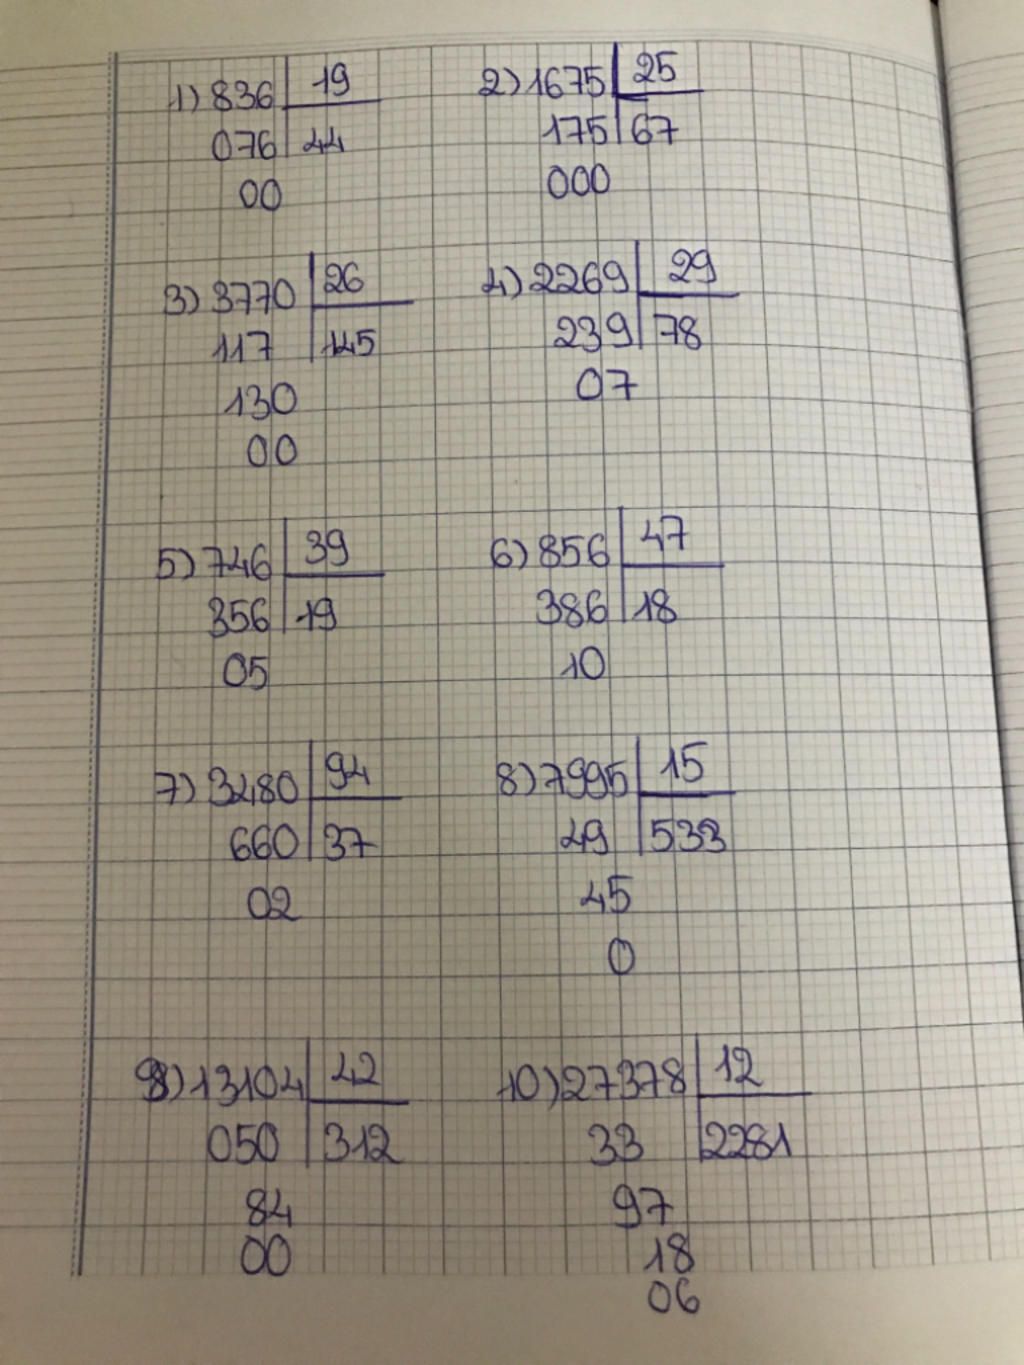 1) 836 19
076 44
00
2) 1675 25
175 67
000
3) 3770 26
117 145
130
00
4) 2269 29
239 78
07
5) 746 39
356 19
05
6) 856 47
386 18
10
7) 3480 94
660 37
02
8) 7995 15
49 533
45
0
9) 13104 42
050 312
84
00
10) 27378 12
33 2281
97
18
06